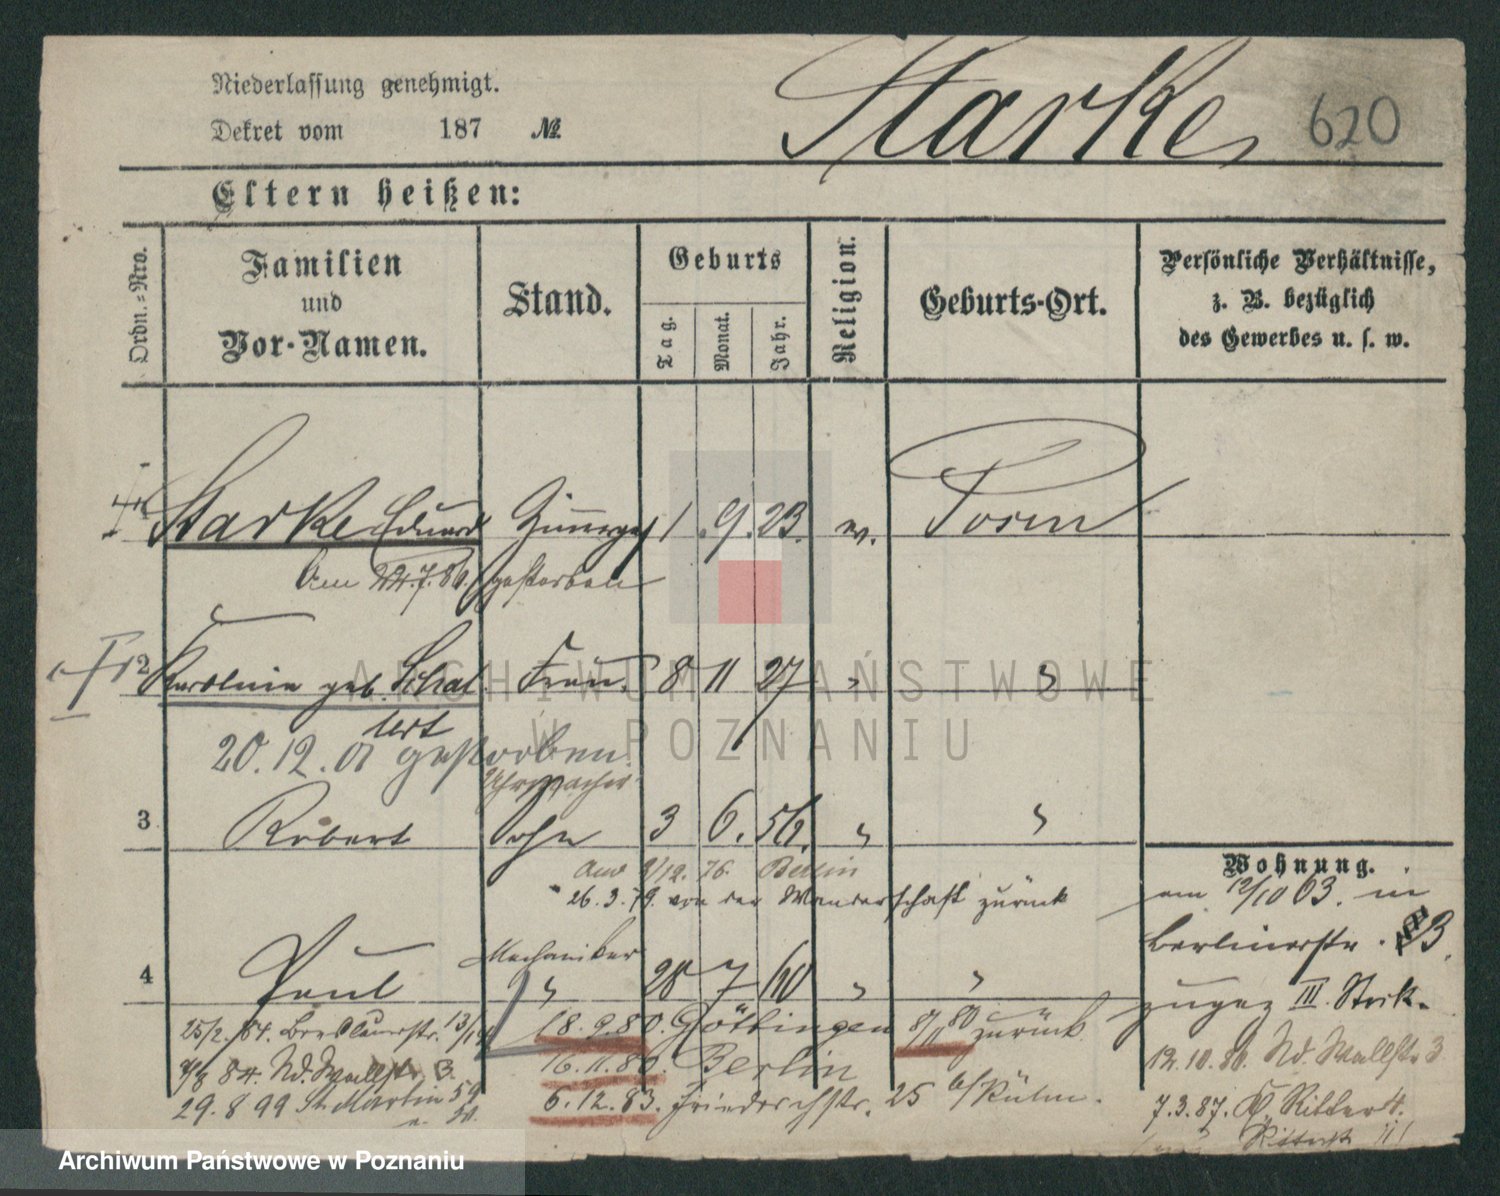 Niederlassung genehmigt.
Starke, 620
Dekret vom 187 №
Eltern heißen:
Ordn.=Nro.
Familien
und
Vor-Namen.
Stand.
Geburts
Tag.
Monat.
Jahr.
Religion.
Geburts-Ort.
Persönliche Verhältnisse,
z. B. bezüglich
des Gewerbes u. s. w.
Starke Eduard 1. 9. 23. ev. Posen
Am 22.7.80. gestorben
2 Karoline geb. Schal Frau 8 11 27 " "
lert
20.12.01 gestorben.
Uhrmacher
3 Robert Sohn 3 6. 57. " "
Wohnung.
Aus 2/12. 76. Berlin
26.3.79. von der Wanderschaft zurück
am 12/10 63. in
Berlinerstr. 13.
Mechaniker
4 Paul " 28 7 60 " "
III. Stck.
25/2. 84. Breslauerstr. 13/14
18.9.80. Göttingen 8/11 80 zurück
7/8 84. Nd. Wallstr. 3.
16.11.80. Berlin
12.10.80. Nd. Wallstr 3
29.8.99 St. Martin 59
6.12.83. Friedrichstr. 25 b/
7.3.87. Ritterstr.
ARCHIWUM PAŃSTWOWE
W POZNANIU
Archiwum Państwowe w Poznaniu